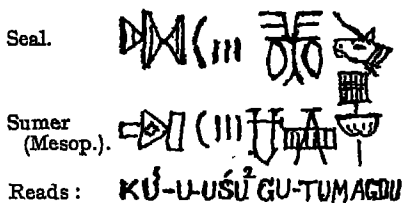 Seal.
Sumer
(Mesop.).
Reads: KÚ-U-UŚU² GU-TUMAGDU